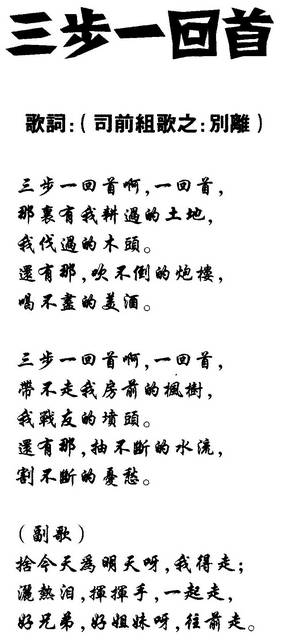 三步一回首
歌詞:(司前組歌之:別離)
三步一回首啊,一回首,
那裏有我耕過的土地,
我伐過的木頭。
還有那,吹不倒的炮樓,
喝不盡的美酒。
三步一回首啊,一回首,
帶不走我房前的楓樹,
我戰友的墳頭。
還有那,抽不斷的水流,
割不斷的憂愁。
(副歌)
捨今天爲明天呀,我得走;
灑熱泪,揮揮手,一起走,
好兄弟,好姐妹呀,往前走。